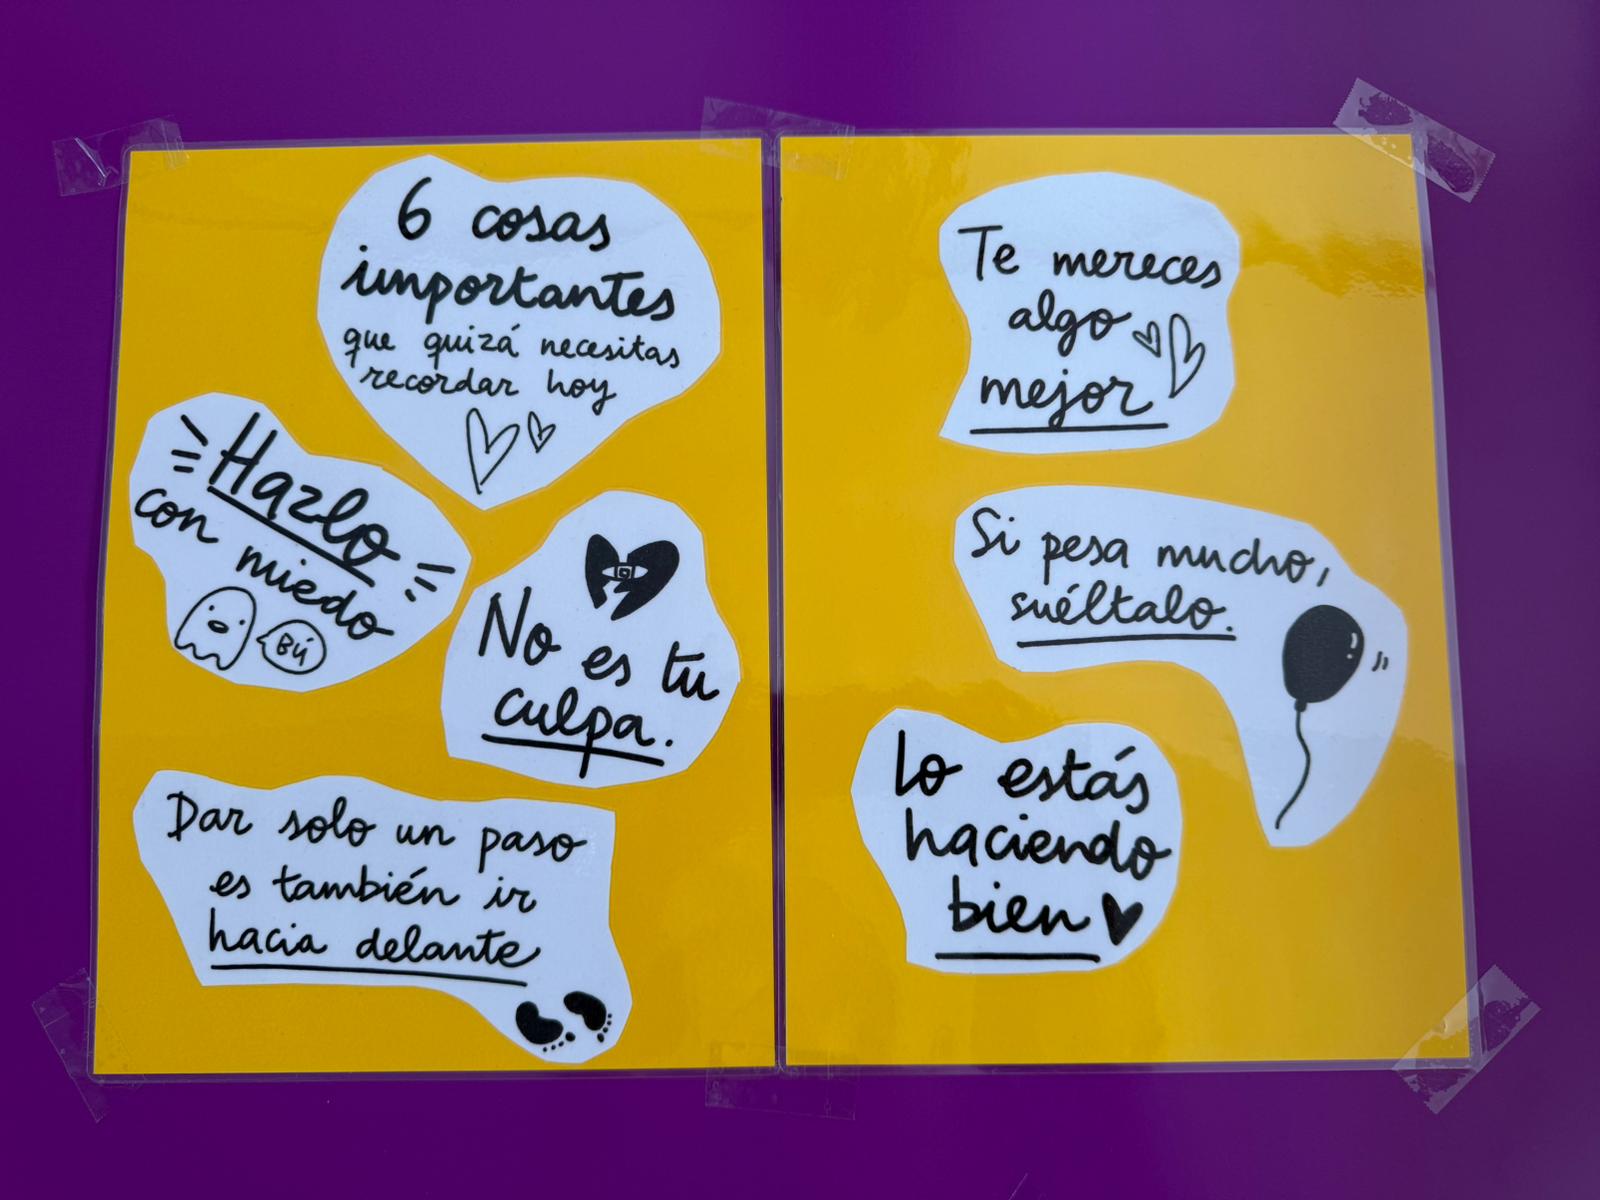 6 cosas
importantes
que quizá necesitas
recordar hoy
Hazlo
con miedo
BÚ
No es tu
culpa.
Dar solo un paso
es también ir
hacia delante
Te mereces
algo
mejor
Si pesa mucho,
suéltalo.
Lo estás
haciendo
bien